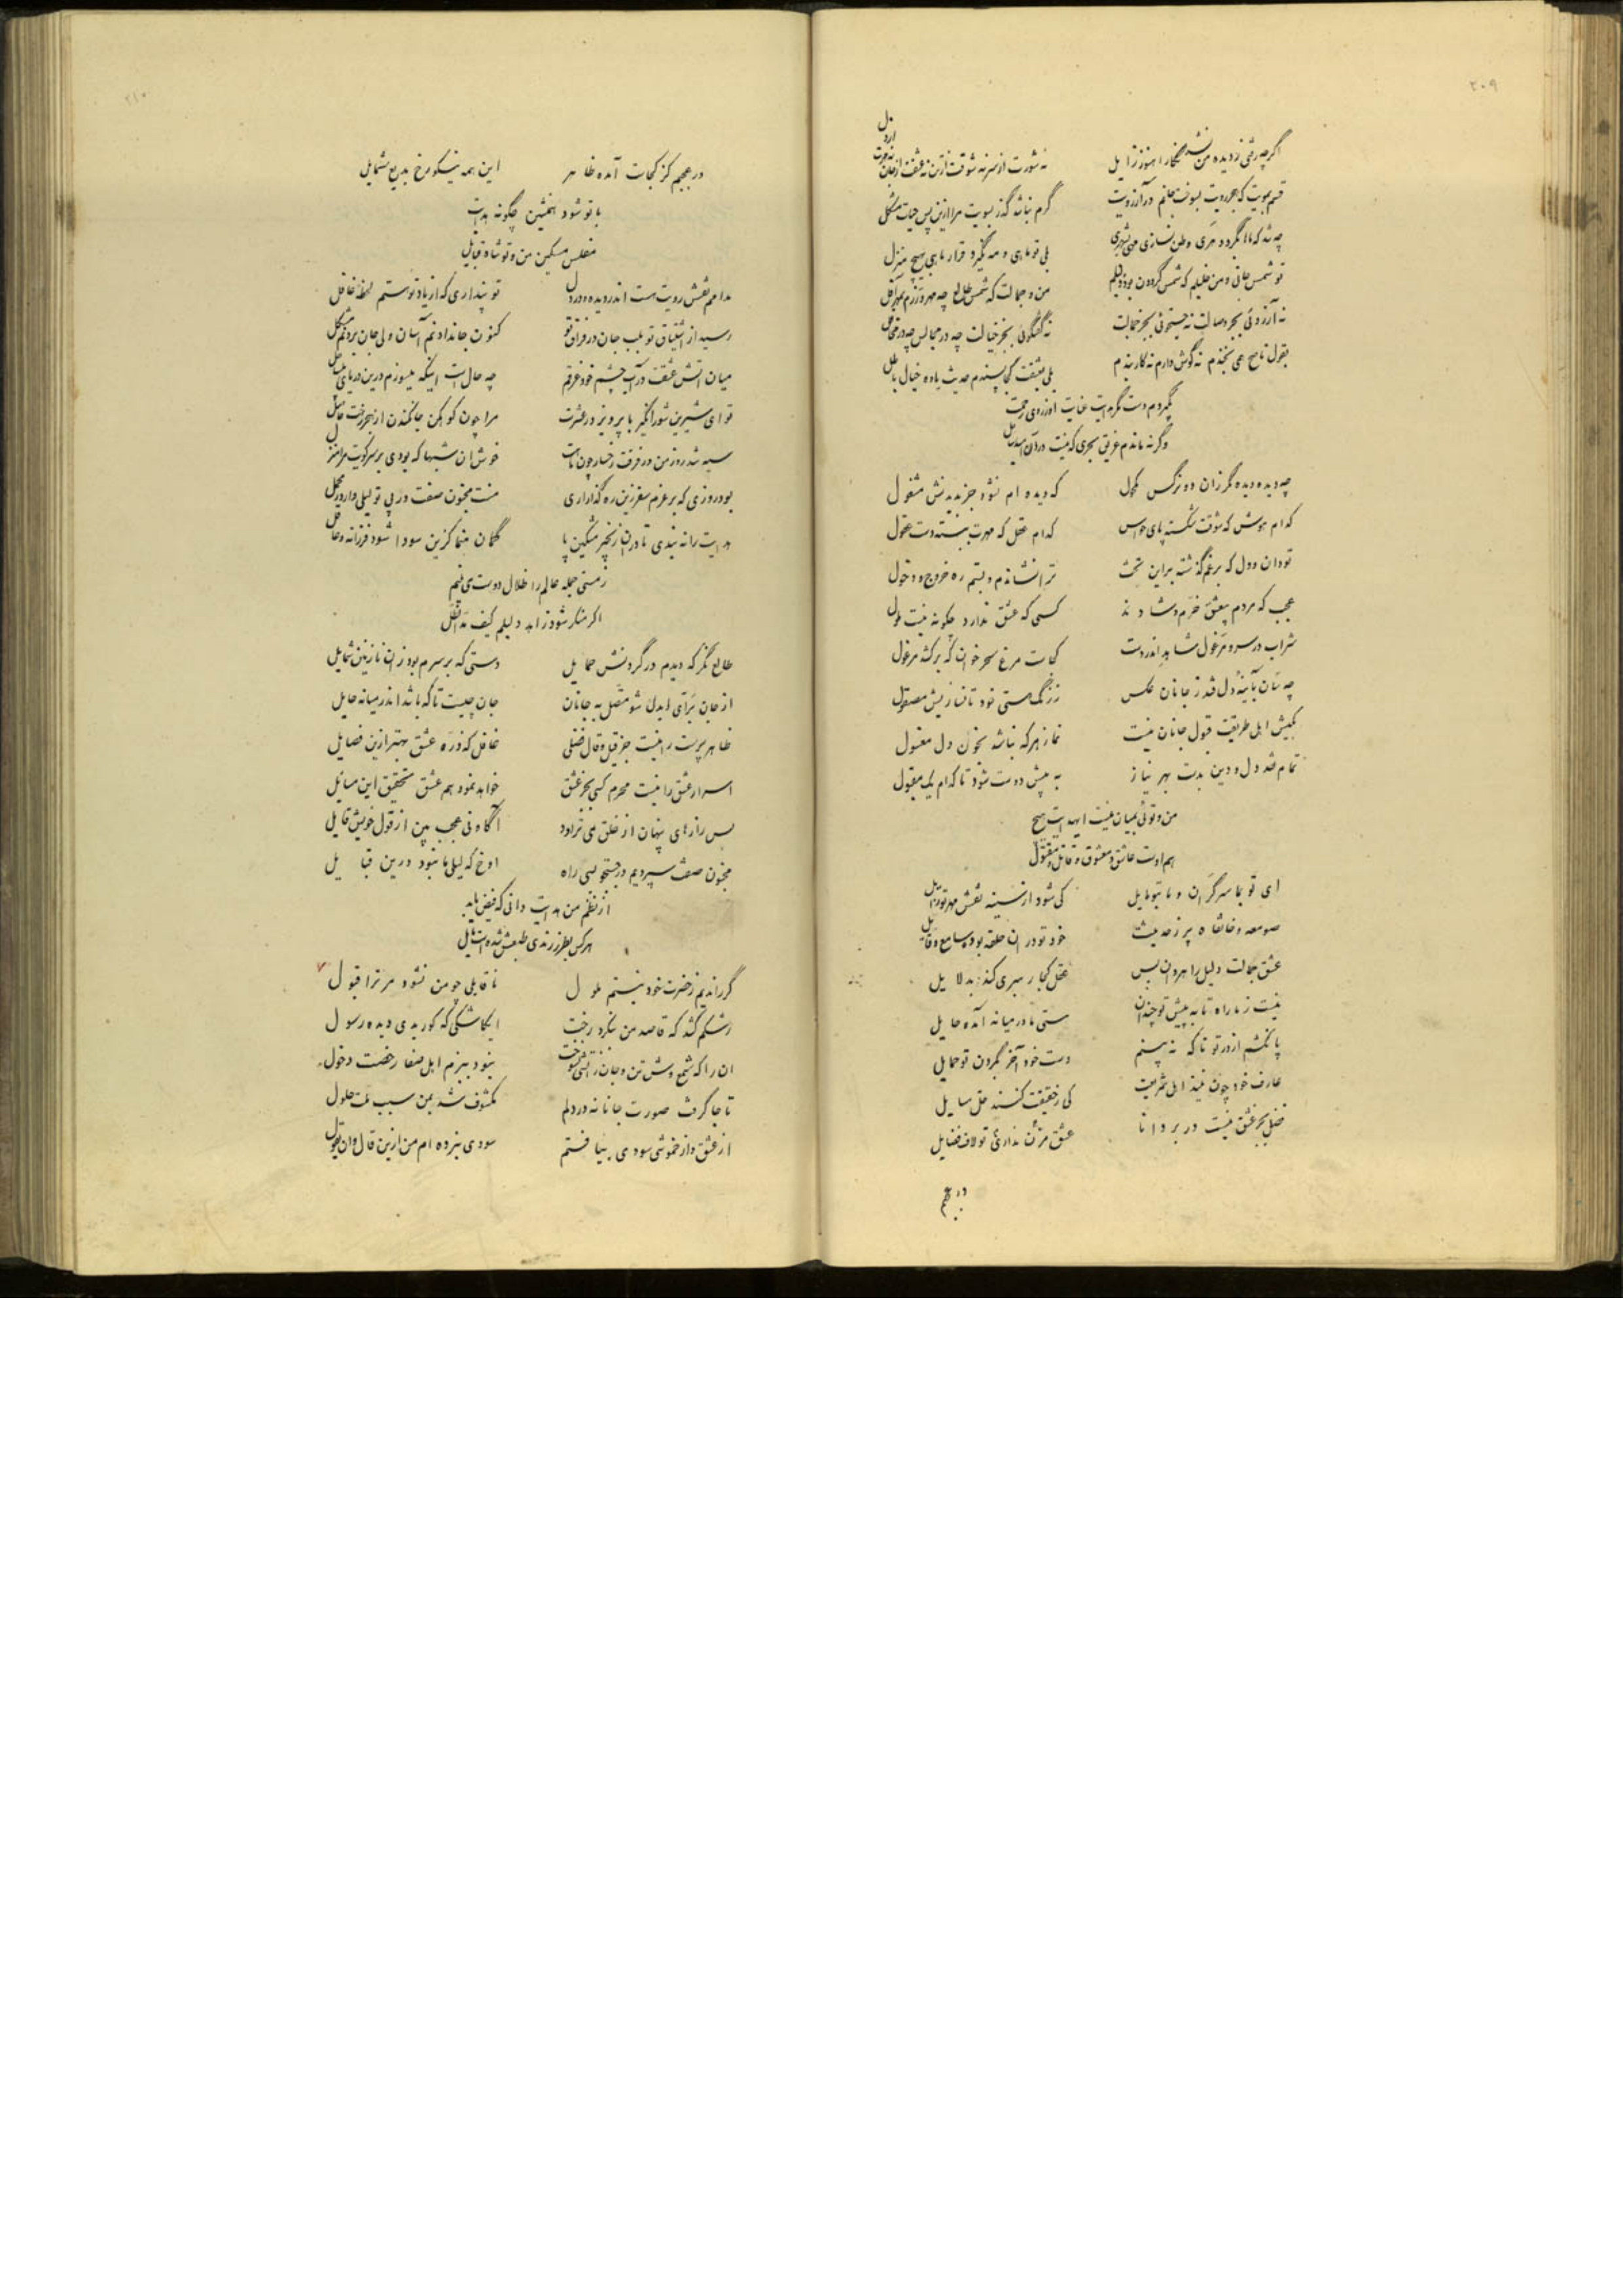 ۲۰۹
اگرچه رفتی ز دیده من نشد نگارا هنوز زایل
نه شورت از سر نه شوقت از تن نه عشقت از جان نه مهرت از دل
قسم بمویت که هجر رویت بسوخت جانم در آرزویت
گرم نباشد گذر بسویت مرا ازین پس حیات مشکل
چه شد که ما را نگردد وطن نسازی شهری
بلی تو ماهی و مه نگیرد قرار ماهی بهیچ منزل
تو شمس جانی و من خلیلم که شمس گردون بود دلیلم
من و جمالت که شمس طالع چه مهر ورزم بمهر آفل
نه آرزوئی بجز وصالت نه جستجوئی بجز جمالت
نه گفتگوئی بجز خیالت چه در مجالس چه در محافل
بقول ناصح نه گوش دارم نه کار بندم
بلی بعشقت کجا پسندم حدیث یاوه خیال باطل
نگیردم دست گر هدایت عنایت او ز روی رحمت
وگرنه ماندم غریق بحری که نیست در آن امید ساحل
چه دیده دیده مگر زان دو نرگس مکحول
که دیده ام نشود جز بدیدنش مشغول
کدام هوش که شوقت شکسته پای حواس
کدام عقل که مهرت ببسته دست عقول
تو دان و دل که برغم گذشته براین تخت
ترا نشاندم و بستم ره خروج و دخول
عجب که مردم بیعشق خرم و شادند
کسی که عشق ندارد چگونه نیست ملول
شراب در سر و مرغول شاهد اندر دست
کجاست مرغ سحرخوان که برکشد مرغول
چه سان بآینهٔ دل فتد ز جانان عکس
ز زنگ هستی خود تا نسازیش مصقول
بکیش اهل طریقت قبول جانان نیست
نماز هرکه نباشد بخون دل مغسول
تمام شد دل و دین بدست بهر نیاز
به پیش دوست شود تا کدام یک مقبول
من و توئی بمیان نیست ای هدایت هیچ
هم اوست عاشق و معشوق و قاتل و مقتول
ای تو بما سرگران و ما بتو مایل
کی شود از سینه نقش مهر تو زایل
صومعه و خانقاه پر ز حدیثت
خود تو در ان حلقه بوده سامع و قایل
عشق جمالت دلیل راهروان بس
عقل کجا رهبری کند بدلایل
نیست ز ما راه تا به پیش تو چندان
هستی ما در میانه آمده حایل
پا نکشم از در تو تا که نه بینم
دست خود آخر بگردن تو حمایل
عارف خود چون نیند اهل شریعت
کی ز حقیقت کنند حل مسایل
فضل بجز عشق نیست در بر دانا
عشق مزن نداری تو لاف فضایل
در عجبم
۲۱۰
در عجبم کز کجات آمده ظاهر
این همه نیکو رخ بدیع شمایل
با تو شود همنشین چگونه هدایت
مفلس مسکین من و تو شاه قبایل
مدامم نقش رویت هست اندر دیده و در دل
تو پنداری که از یاد تو هستم لحظهٔ غافل
رسید از اشتیاق تو بلب جان در فراق تو
کنون جان دادنم آسان ولی جان بردنم مشکل
میان آتش عشقت در آب چشم خود غرقم
چه حال است اینکه میسوزم درین دریای بیساحل
تو ای شیرین شورانگیز با پرویز در عشرت
مرا چون کوهکن جان کندن از هجر رخت حاصل
سیه شد روز من در فرقت رخسار چون ماهت
خوش آن شبها که بودی بر سر کویت مرا منزل
بود روزی که بر عزم سفر زین ره گذار آری
منت مجنون صفت در پی تو لیلی وار در محمل
هدایت را نه بندی تا در ان زنجیر مشکین پا
گمان بنما کزین سودا شود فرزانه و عاقل
ز مستی جمله عالم را ظلال دوست می بینم
اگر منکر شود زاهد دلیلم کیف مد الظل
طالع نگر که دیدم در گردنش حمایل
دستی که بر سرم بود زان نازنین شمایل
از جان برآی ای دل شو متصل به جانان
جان چیست تا که باشد اندر میانه حایل
ظاهر پرست را نیست جز قیل و قال فضلی
غافل که ذره عشق بهتر ازین فضایل
اسرار عشق را نیست محرم کسی بجز عشق
خواهد نمود هم عشق تحقیق این مسایل
بس رازهای پنهان از خلق می تراود
آگاه نی عجب بین از قول خویش قایل
مجنون صفت سپردیم در جستجو بسی راه
آوخ که لیلی ما نبود درین قبایل
از نظم من هدایت دانی که فیض یابد
هرکس بطرز رندی طبعش شده است مایل
گر راندیم ز حضرت خود نیستم ملول
ناقابلی چو من نشود مر ترا قبول
رشکم کشد که قاصد من بنگرد رخت
ایکاشکی که کور بدی دیده رسول
ان را که شمع وش تن و جان ز آتشی نسوخت
نبود ببزم اهل صفا رخصت دخول
تا جا گرفت صورت جانانه در دلم
مکشوف شد بمن سبب ملت حلول
از عشق و از خموشی سودی بیافتم
سودی نبرده ام من ازین قال و ان یقول